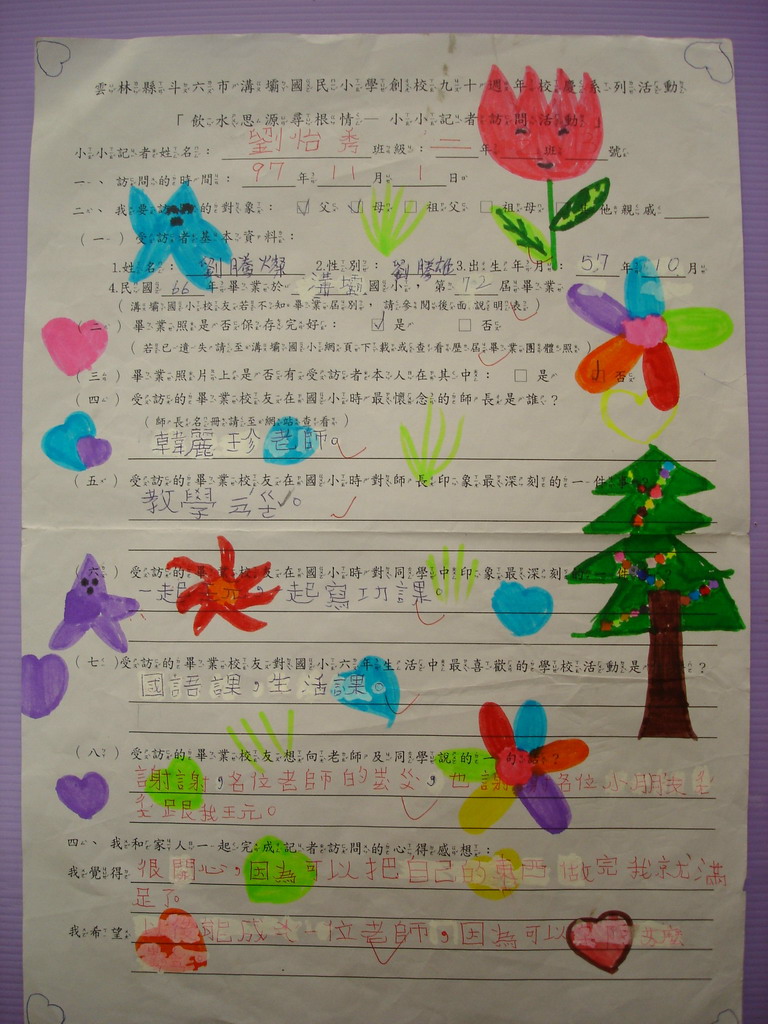 雲林縣斗六市溝壩國民小學創校九十週年校慶系列活動
「飲水思源尋根情— 小小記者訪問活動」
小小記者姓名：劉怡秀 班級：二年 班 號
一、訪問的時間：97年11月1日
二、我要訪 的對象：☑父 ☑母 □祖父 □祖母 他親戚
(一)受訪者基本資料：
1.姓名：劉騰燦 2.性別：劉騰雄 3.出生年月：57年10月
4.民國66年畢業於溝壩國小，第72屆畢業
(溝壩國小校友若不知畢業屆別，請參閱後面說明表)
(二)畢業照是否保存完好：☑是 □否
(若已遺失請至溝壩國小網頁下載或查看歷屆畢業團體照)
(三)畢業照片上是否有受訪者本人在其中：□是 否
(四)受訪的畢業校友在國小時最懷念的師長是誰？
(師長名冊請至網站查看)
韓麗珍老師。
(五)受訪的畢業校友在國小時對師長印象最深刻的一件事？
教學ㄍㄢ。
(六)受訪的畢業校友在國小時對同學中印象最深刻的
一起 ，一起寫功課。
(七)受訪的畢業校友對國小六年生活中最喜歡的學校活動是 ？
國語課，生活課。
(八)受訪的畢業校友想向老師及同學說的一句話？
謝謝，各位老師的 ，也謝 各位小朋友
跟我王元。
四、我和家人一起完成記者訪問的心得感想：
我覺得 很開心，因為可以把自己的東西做完我就滿
足了。
我希望 以後能成為一位老師，因為可以